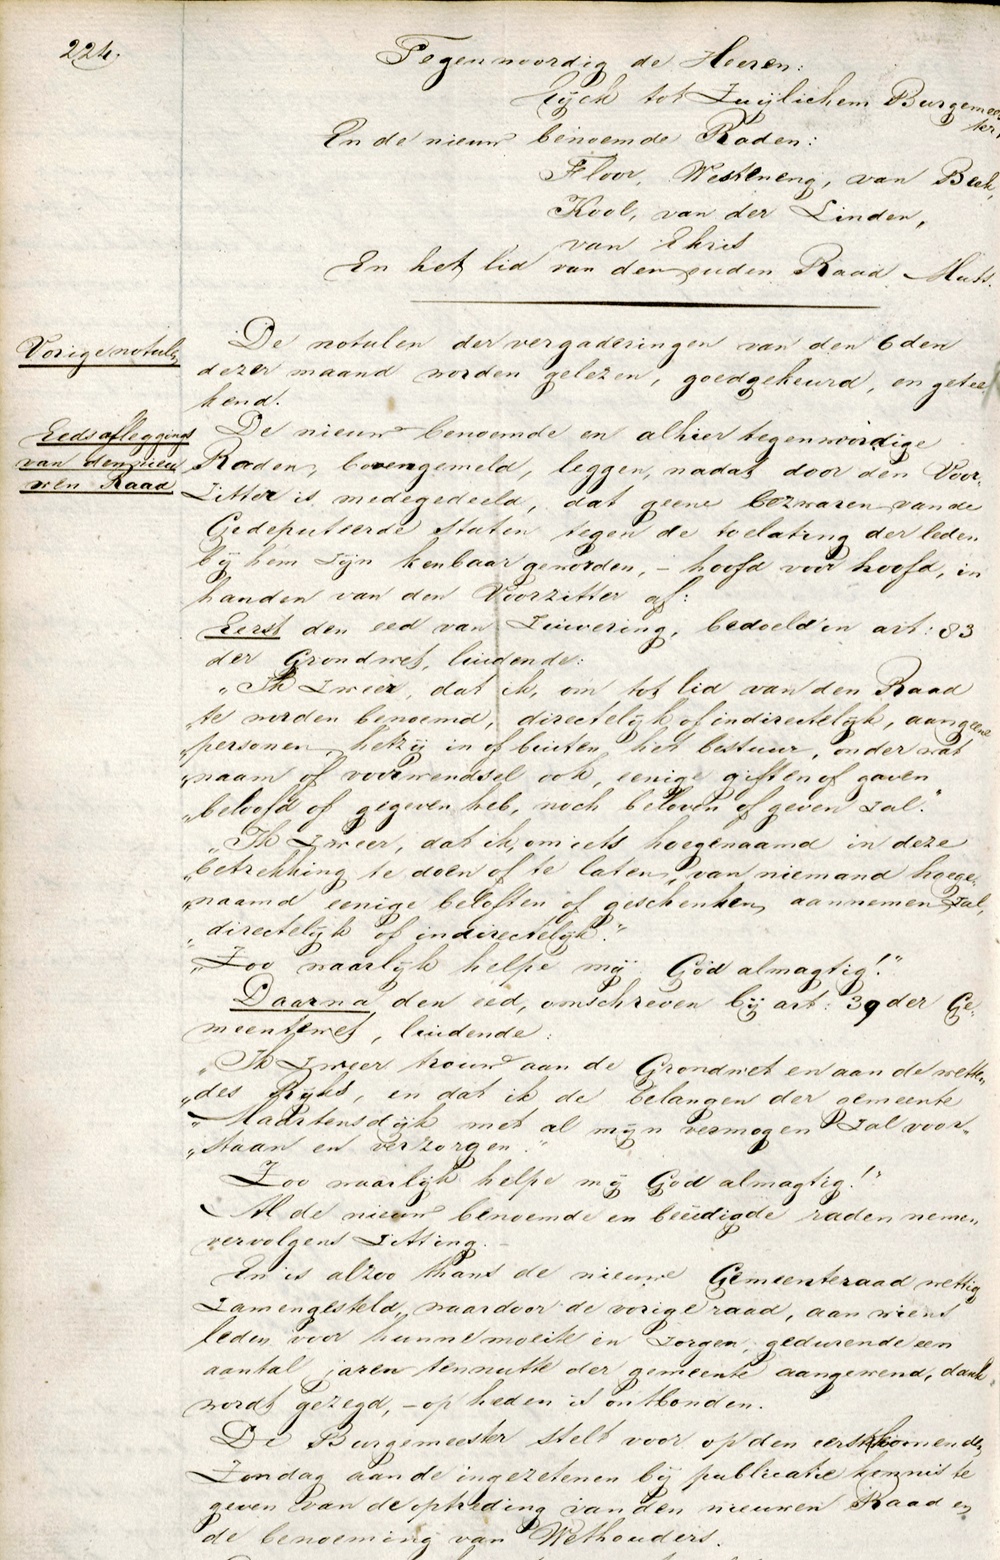 224.
Tegenwoordig de Heeren:
Eyck tot Zuijlichem Burgemees
ter,
En de nieuw benoemde Raden:
Floor, Westeneng, van Beek,
Kool, van der Linden,
van Ekris
En het lid van den ouden Raad
Vorige notulen
De notulen der vergaderingen van den 6den
dezer maand worden gelezen, goedgekeurd, en getee
kend.
Eedsaflegging
van den nieu
wen Raad
De nieuw benoemde en alhier tegenwoordige
Raden, bovengemeld, leggen, nadat door den Voor-
zitter is medegedeeld, dat geene bezwaren van de
Gedeputeerde Staten tegen de toelating der leden
bij hem zijn kenbaar geworden, – hoofd voor hoofd, in
handen van den Voorzitter af:
Eerst den eed van zuivering, bedoeld in art: 83
der Grondwet, luidende:
„Ik zweer, dat ik, om tot lid van den Raad
„te worden benoemd, directelijk of indirectelijk, aan geene
„personen, hetzij in of buiten het bestuur, onder wat
„naam of voorwendsel ook, eenige giften of gaven
„beloofd of gegeven heb, noch beloven of geven zal."
„Ik zweer, dat ik, om iets hoegenaamd in deze
„betrekking te doen of te laten, van niemand hoege-
„naamd eenige beloften of geschenken aannemen zal,
„directelijk of indirectelijk."
„Zoo waarlijk helpe mij God almagtig!"
Daarna den eed, omschreven bij art: 39 der Ge-
meentewet, luidende:
„Ik zweer trouw aan de Grondwet en aan de wetten
„des Rijks, en dat ik de belangen der gemeente
„Maartensdijk met al mijn vermogen zal voor-
„staan en verzorgen."
Zoo waarlijk helpe mij God almagtig!"
Al de nieuw benoemde en beëedigde raden nemen
vervolgens zitting. –
En is alzoo thans de nieuwe Gemeenteraad wettig
zamengesteld, waardoor de vorige raad, aan wiens
leden voor hunne moeite en zorgen, gedurende een
aantal jaren ten nutte der gemeente aangewend, dank
wordt gezegd, – op heden is ontbonden.
De Burgemeester stelt voor op den eerstkomenden
Zondag aan de ingezetenen bij publicatie kennis te
geven van de optreding van den nieuwen Raad en
de benoeming van Wethouders.